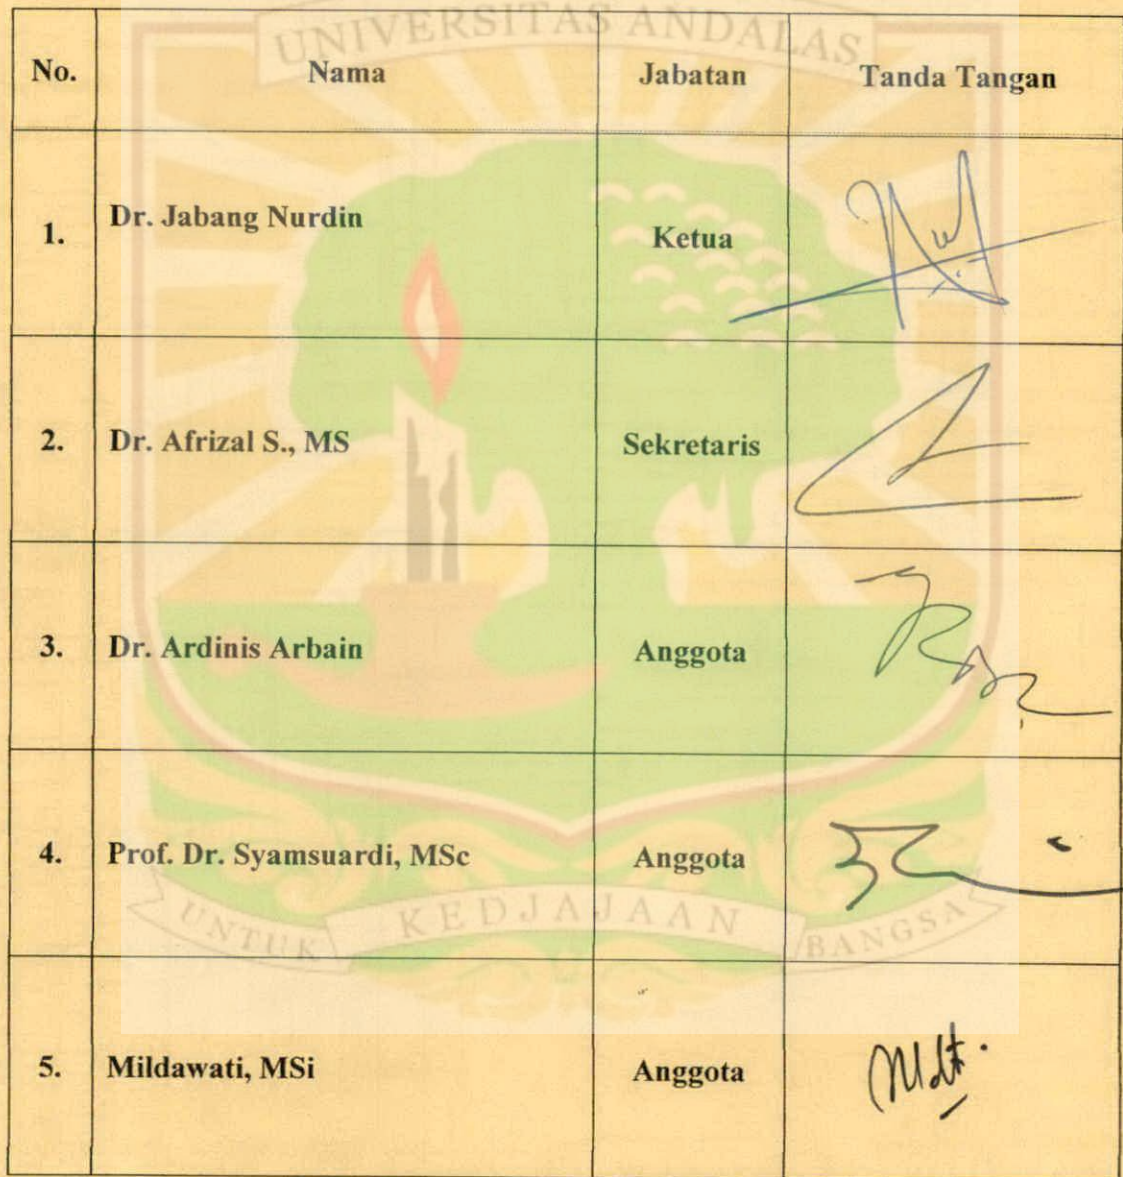 UNIVERSITAS ANDALAS
No. Nama Jabatan Tanda Tangan
1. Dr. Jabang Nurdin Ketua
2. Dr. Afrizal S., MS Sekretaris
3. Dr. Ardinis Arbain Anggota
4. Prof. Dr. Syamsuardi, MSc Anggota
UNTUK KEDJAJAAN BANGSA
5. Mildawati, MSi Anggota